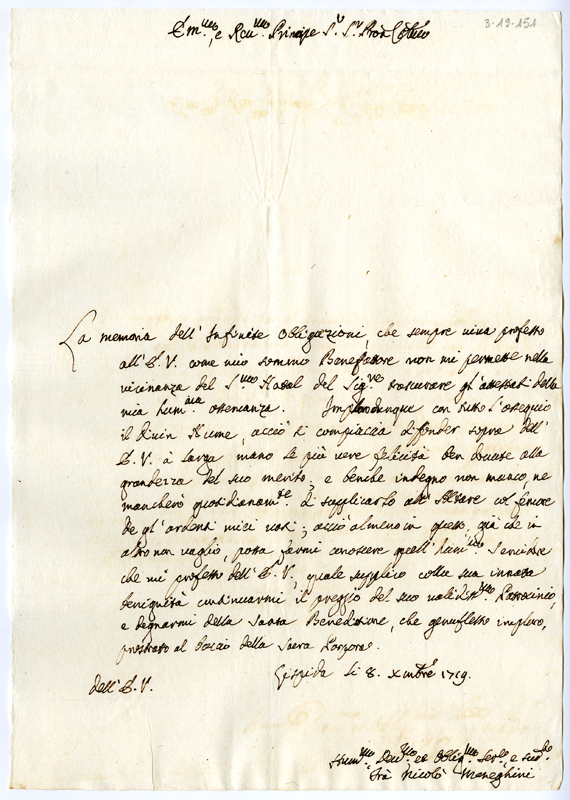 3-19-151
Em.mo, e Reu.mo Principe S.r S.r
La memoria dell' Infinite Obligazioni, che sempre viva professo
all' E. V. come mio sommo Benefattore non mi permette nella
vicinanza del S.mo Natal del Sig.re trascurare gl' attestati della
mia hum.ma osservanza. Imploro dunque con tutto l'ossequio
il Divin Nume, acciò si compiaccia difonder sopra dell'
E. V. à larga mano le più vere felicità ben dovute alla
grandezza del suo merito; e benche indegno non manco, ne
mancherò quotidianam.te di supplicarlo all' Altare col fervore
de gl' ardenti miei voti; acciò almeno in questo, già che in
altro non vaglio, possa farmi conoscere quell' hum.mo Servidore
che mi professo dell' E. V., quale supplico colla sua innata
benignità continuarmi il preggio del suo validiss.mo Patrocinio,
e degnarmi della Santa Benedizione, che genuflesso imploro,
prostrato al bascio della Sacra Porpora.
dell' E. V.
li 8. Xmbre 1719.
Hum.mo Deu.mo et Oblig.mo Ser.e, e
Frà Nicolò Meneghini